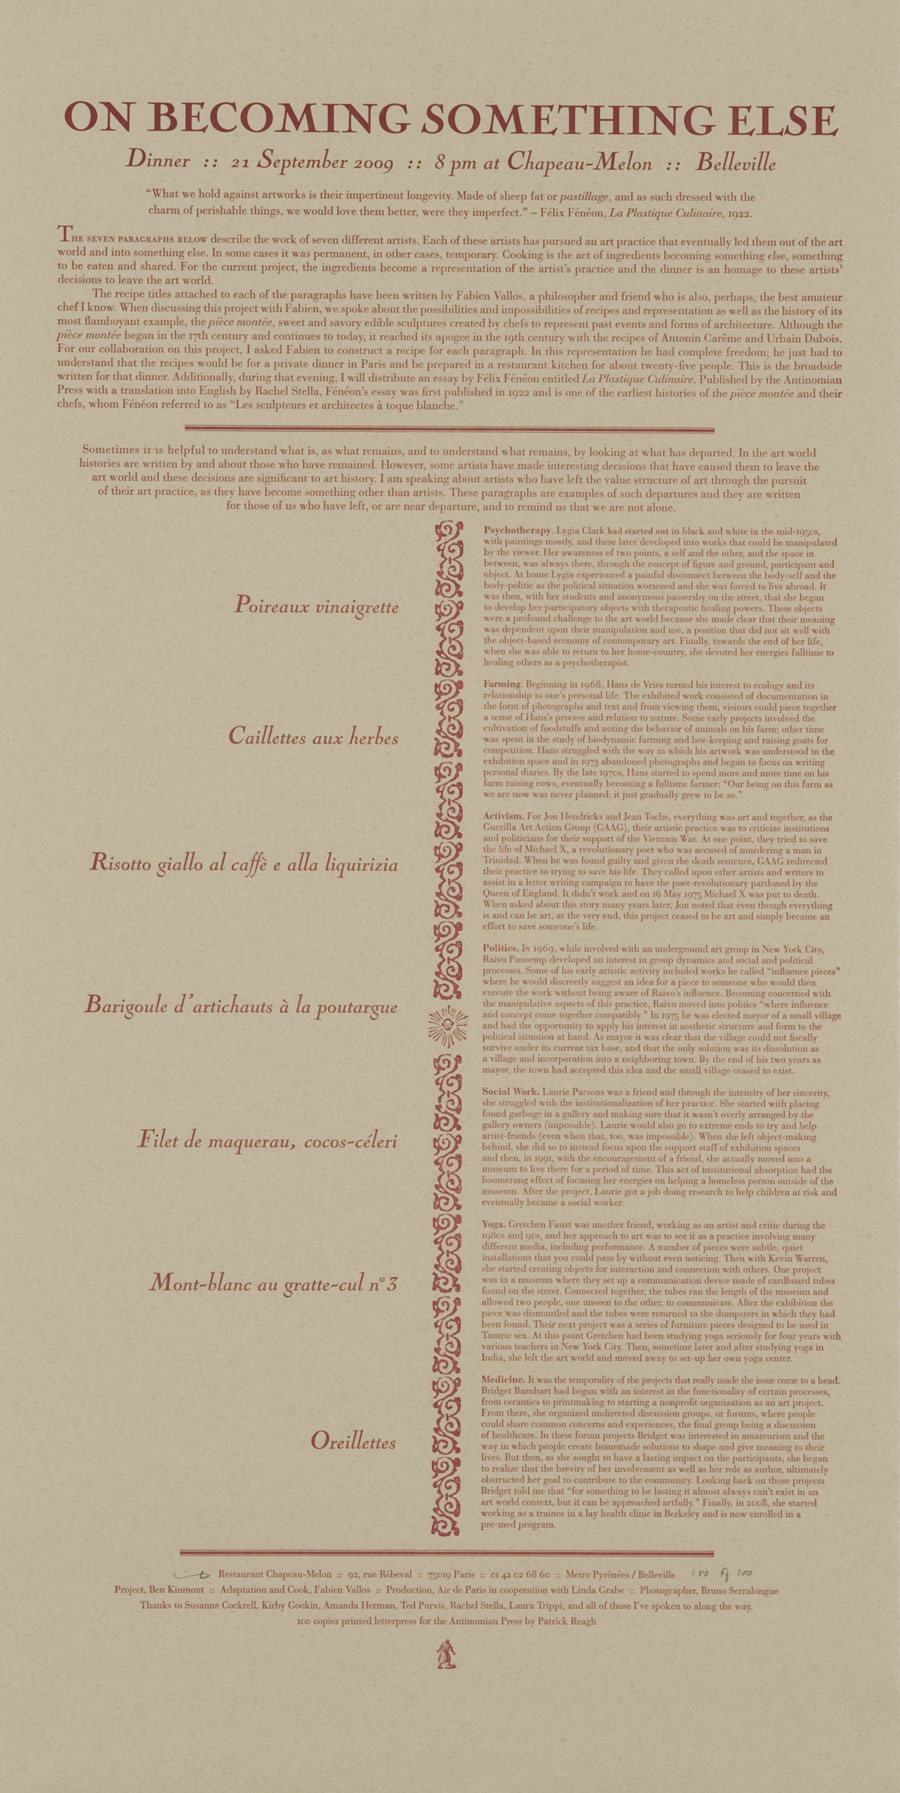 ON BECOMING SOMETHING ELSE
Dinner :: 21 September 2009 :: 8 pm at Chapeau-Melon :: Belleville
“What we hold against artworks is their impertinent longevity. Made of sheep fat or pastillage, and as such dressed with the
charm of perishable things, we would love them better, were they imperfect.” – Félix Fénéon, La Plastique Culinaire, 1922.
THE SEVEN PARAGRAPHS BELOW describe the work of seven different artists. Each of these artists has pursued an art practice that eventually led them out of the art
world and into something else. In some cases it was permanent, in other cases, temporary. Cooking is the act of ingredients becoming something else, something
to be eaten and shared. For the current project, the ingredients become a representation of the artist’s practice and the dinner is an homage to these artists’
decisions to leave the art world.
The recipe titles attached to each of the paragraphs have been written by Fabien Vallos, a philosopher and friend who is also, perhaps, the best amateur
chef I know. When discussing this project with Fabien, we spoke about the possibilities and impossibilities of recipes and representation as well as the history of its
most flamboyant example, the pièce montée, sweet and savory edible sculptures created by chefs to represent past events and forms of architecture. Although the
pièce montée began in the 17th century and continues to today, it reached its apogee in the 19th century with the recipes of Antonin Carême and Urbain Dubois.
For our collaboration on this project, I asked Fabien to construct a recipe for each paragraph. In this representation he had complete freedom; he just had to
understand that the recipes would be for a private dinner in Paris and be prepared in a restaurant kitchen for about twenty-five people. This is the broadside
written for that dinner. Additionally, during that evening, I will distribute an essay by Félix Fénéon entitled La Plastique Culinaire. Published by the Antinomian
Press with a translation into English by Rachel Stella, Fénéon’s essay was first published in 1922 and is one of the earliest histories of the pièce montée and their
chefs, whom Fénéon referred to as “Les sculpteurs et architectes à toque blanche.”
Sometimes it is helpful to understand what is, as what remains, and to understand what remains, by looking at what has departed. In the art world
histories are written by and about those who have remained. However, some artists have made interesting decisions that have caused them to leave the
art world and these decisions are significant to art history. I am speaking about artists who have left the value structure of art through the pursuit
of their art practice, as they have become something other than artists. These paragraphs are examples of such departures and they are written
for those of us who have left, or are near departure, and to remind us that we are not alone.
Poireaux vinaigrette
Psychotherapy. Lygia Clark had started out in black and white in the mid-1950s,
with paintings mostly, and these later developed into works that could be manipulated
by the viewer. Her awareness of two points, a self and the other, and the space in
between, was always there, through the concept of figure and ground, participant and
object. At home Lygia experienced a painful disconnect between the body-self and the
body-politic as the political situation worsened and she was forced to live abroad. It
was then, with her students and anonymous passersby on the street, that she began
to develop her participatory objects with therapeutic healing powers. These objects
were a profound challenge to the art world because she made clear that their meaning
was dependent upon their manipulation and use, a position that did not sit well with
the object-based economy of contemporary art. Finally, towards the end of her life,
when she was able to return to her home-country, she devoted her energies fulltime to
healing others as a psychotherapist.
Caillettes aux herbes
Farming. Beginning in 1968, Hans de Vries turned his interest to ecology and its
relationship to one’s personal life. The exhibited work consisted of documentation in
the form of photographs and text and from viewing them, visitors could piece together
a sense of Hans’s process and relation to nature. Some early projects involved the
cultivation of foodstuffs and noting the behavior of animals on his farm; other time
was spent in the study of biodynamic farming and bee-keeping and raising goats for
competition. Hans struggled with the way in which his artwork was understood in the
exhibition space and in 1973 abandoned photographs and began to focus on writing
personal diaries. By the late 1970s, Hans started to spend more and more time on his
farm raising cows, eventually becoming a fulltime farmer: “Our being on this farm as
we are now was never planned; it just gradually grew to be so.”
Risotto giallo al caffè e alla liquirizia
Activism. For Jon Hendricks and Jean Toche, everything was art and together, as the
Guerilla Art Action Group (GAAG), their artistic practice was to criticize institutions
and politicians for their support of the Vietnam War. At one point, they tried to save
the life of Michael X, a revolutionary poet who was accused of murdering a man in
Trinidad. When he was found guilty and given the death sentence, GAAG redirected
their practice to trying to save his life. They called upon other artists and writers to
assist in a letter writing campaign to have the poet-revolutionary pardoned by the
Queen of England. It didn’t work and on 16 May 1975 Michael X was put to death.
When asked about this story many years later, Jon noted that even though everything
is and can be art, at the very end, this project ceased to be art and simply became an
effort to save someone’s life.
Barigoule d’artichauts à la poutargue
Politics. In 1969, while involved with an underground art group in New York City,
Raivo Puusemp developed an interest in group dynamics and social and political
processes. Some of his early artistic activity included works he called “influence pieces”
where he would discreetly suggest an idea for a piece to someone who would then
execute the work without being aware of Raivo’s influence. Becoming concerned with
the manipulative aspects of this practice, Raivo moved into politics “where influence
and concept come together compatibly.” In 1975 he was elected mayor of a small village
and had the opportunity to apply his interest in aesthetic structure and form to the
political situation at hand. As mayor it was clear that the village could not fiscally
survive under its current tax base, and that the only solution was its dissolution as
a village and incorporation into a neighboring town. By the end of his two years as
mayor, the town had accepted this idea and the small village ceased to exist.
Filet de maquerau, cocos-céleri
Social Work. Laurie Parsons was a friend and through the intensity of her sincerity,
she struggled with the institutionalization of her practice. She started with placing
found garbage in a gallery and making sure that it wasn’t overly arranged by the
gallery owners (impossible). Laurie would also go to extreme ends to try and help
artist-friends (even when that, too, was impossible). When she left object-making
behind, she did so to instead focus upon the support staff of exhibition spaces
and then, in 1991, with the encouragement of a friend, she actually moved into a
museum to live there for a period of time. This act of institutional absorption had the
boomerang effect of focusing her energies on helping a homeless person outside of the
museum. After the project, Laurie got a job doing research to help children at risk and
eventually became a social worker.
Mont-blanc au gratte-cul nº 3
Yoga. Gretchen Faust was another friend, working as an artist and critic during the
1980s and 90s, and her approach to art was to see it as a practice involving many
different media, including performance. A number of pieces were subtle, quiet
installations that you could pass by without even noticing. Then with Kevin Warren,
she started creating objects for interaction and connection with others. One project
was in a museum where they set up a communication device made of cardboard tubes
found on the street. Connected together, the tubes ran the length of the museum and
allowed two people, one unseen to the other, to communicate. After the exhibition the
piece was dismantled and the tubes were returned to the dumpsters in which they had
been found. Their next project was a series of furniture pieces designed to be used in
Tantric sex. At this point Gretchen had been studying yoga seriously for four years with
various teachers in New York City. Then, sometime later and after studying yoga in
India, she left the art world and moved away to set-up her own yoga center.
Oreillettes
Medicine. It was the temporality of the projects that really made the issue come to a head.
Bridget Barnhart had begun with an interest in the functionality of certain processes,
from ceramics to printmaking to starting a nonprofit organization as an art project.
From there, she organized undirected discussion groups, or forums, where people
could share common concerns and experiences, the final group being a discussion
of healthcare. In these forum projects Bridget was interested in amateurism and the
way in which people create homemade solutions to shape and give meaning to their
lives. But then, as she sought to have a lasting impact on the participants, she began
to realize that the brevity of her involvement as well as her role as author, ultimately
obstructed her goal to contribute to the community. Looking back on those projects
Bridget told me that “for something to be lasting it almost always can’t exist in an
art world context, but it can be approached artfully.” Finally, in 2008, she started
working as a trainee in a lay health clinic in Berkeley and is now enrolled in a
pre-med program.
Restaurant Chapeau-Melon :: 92, rue Rébeval :: 75019 Paris :: 01 42 02 68 60 :: Metro Pyrénées / Belleville 100 of 100
Project, Ben Kinmont :: Adaptation and Cook, Fabien Vallos :: Production, Air de Paris in cooperation with Linda Grabe :: Photographer, Bruno Serralongue
Thanks to Susanne Cockrell, Kirby Gookin, Amanda Herman, Ted Purvis, Rachel Stella, Laura Trippi, and all of those I’ve spoken to along the way.
100 copies printed letterpress for the Antinomian Press by Patrick Reagh